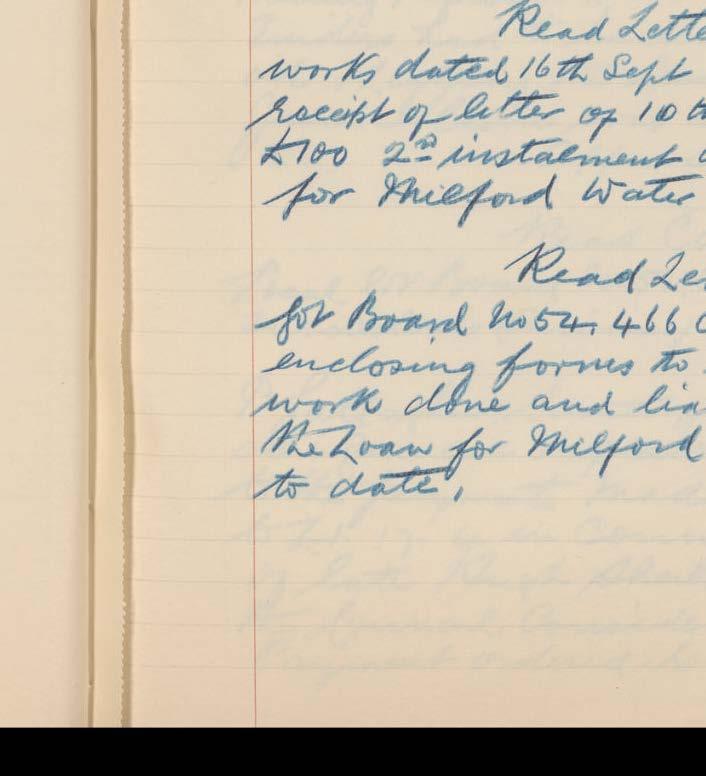 Read Lette
works dated 16th Sept
receipt of letter of 10th
£100 2nd instalment
for Milford Water
Read Let
Gov Board No 54,466
enclosing forms to
work done and lia
the Loan for Milford
to date,